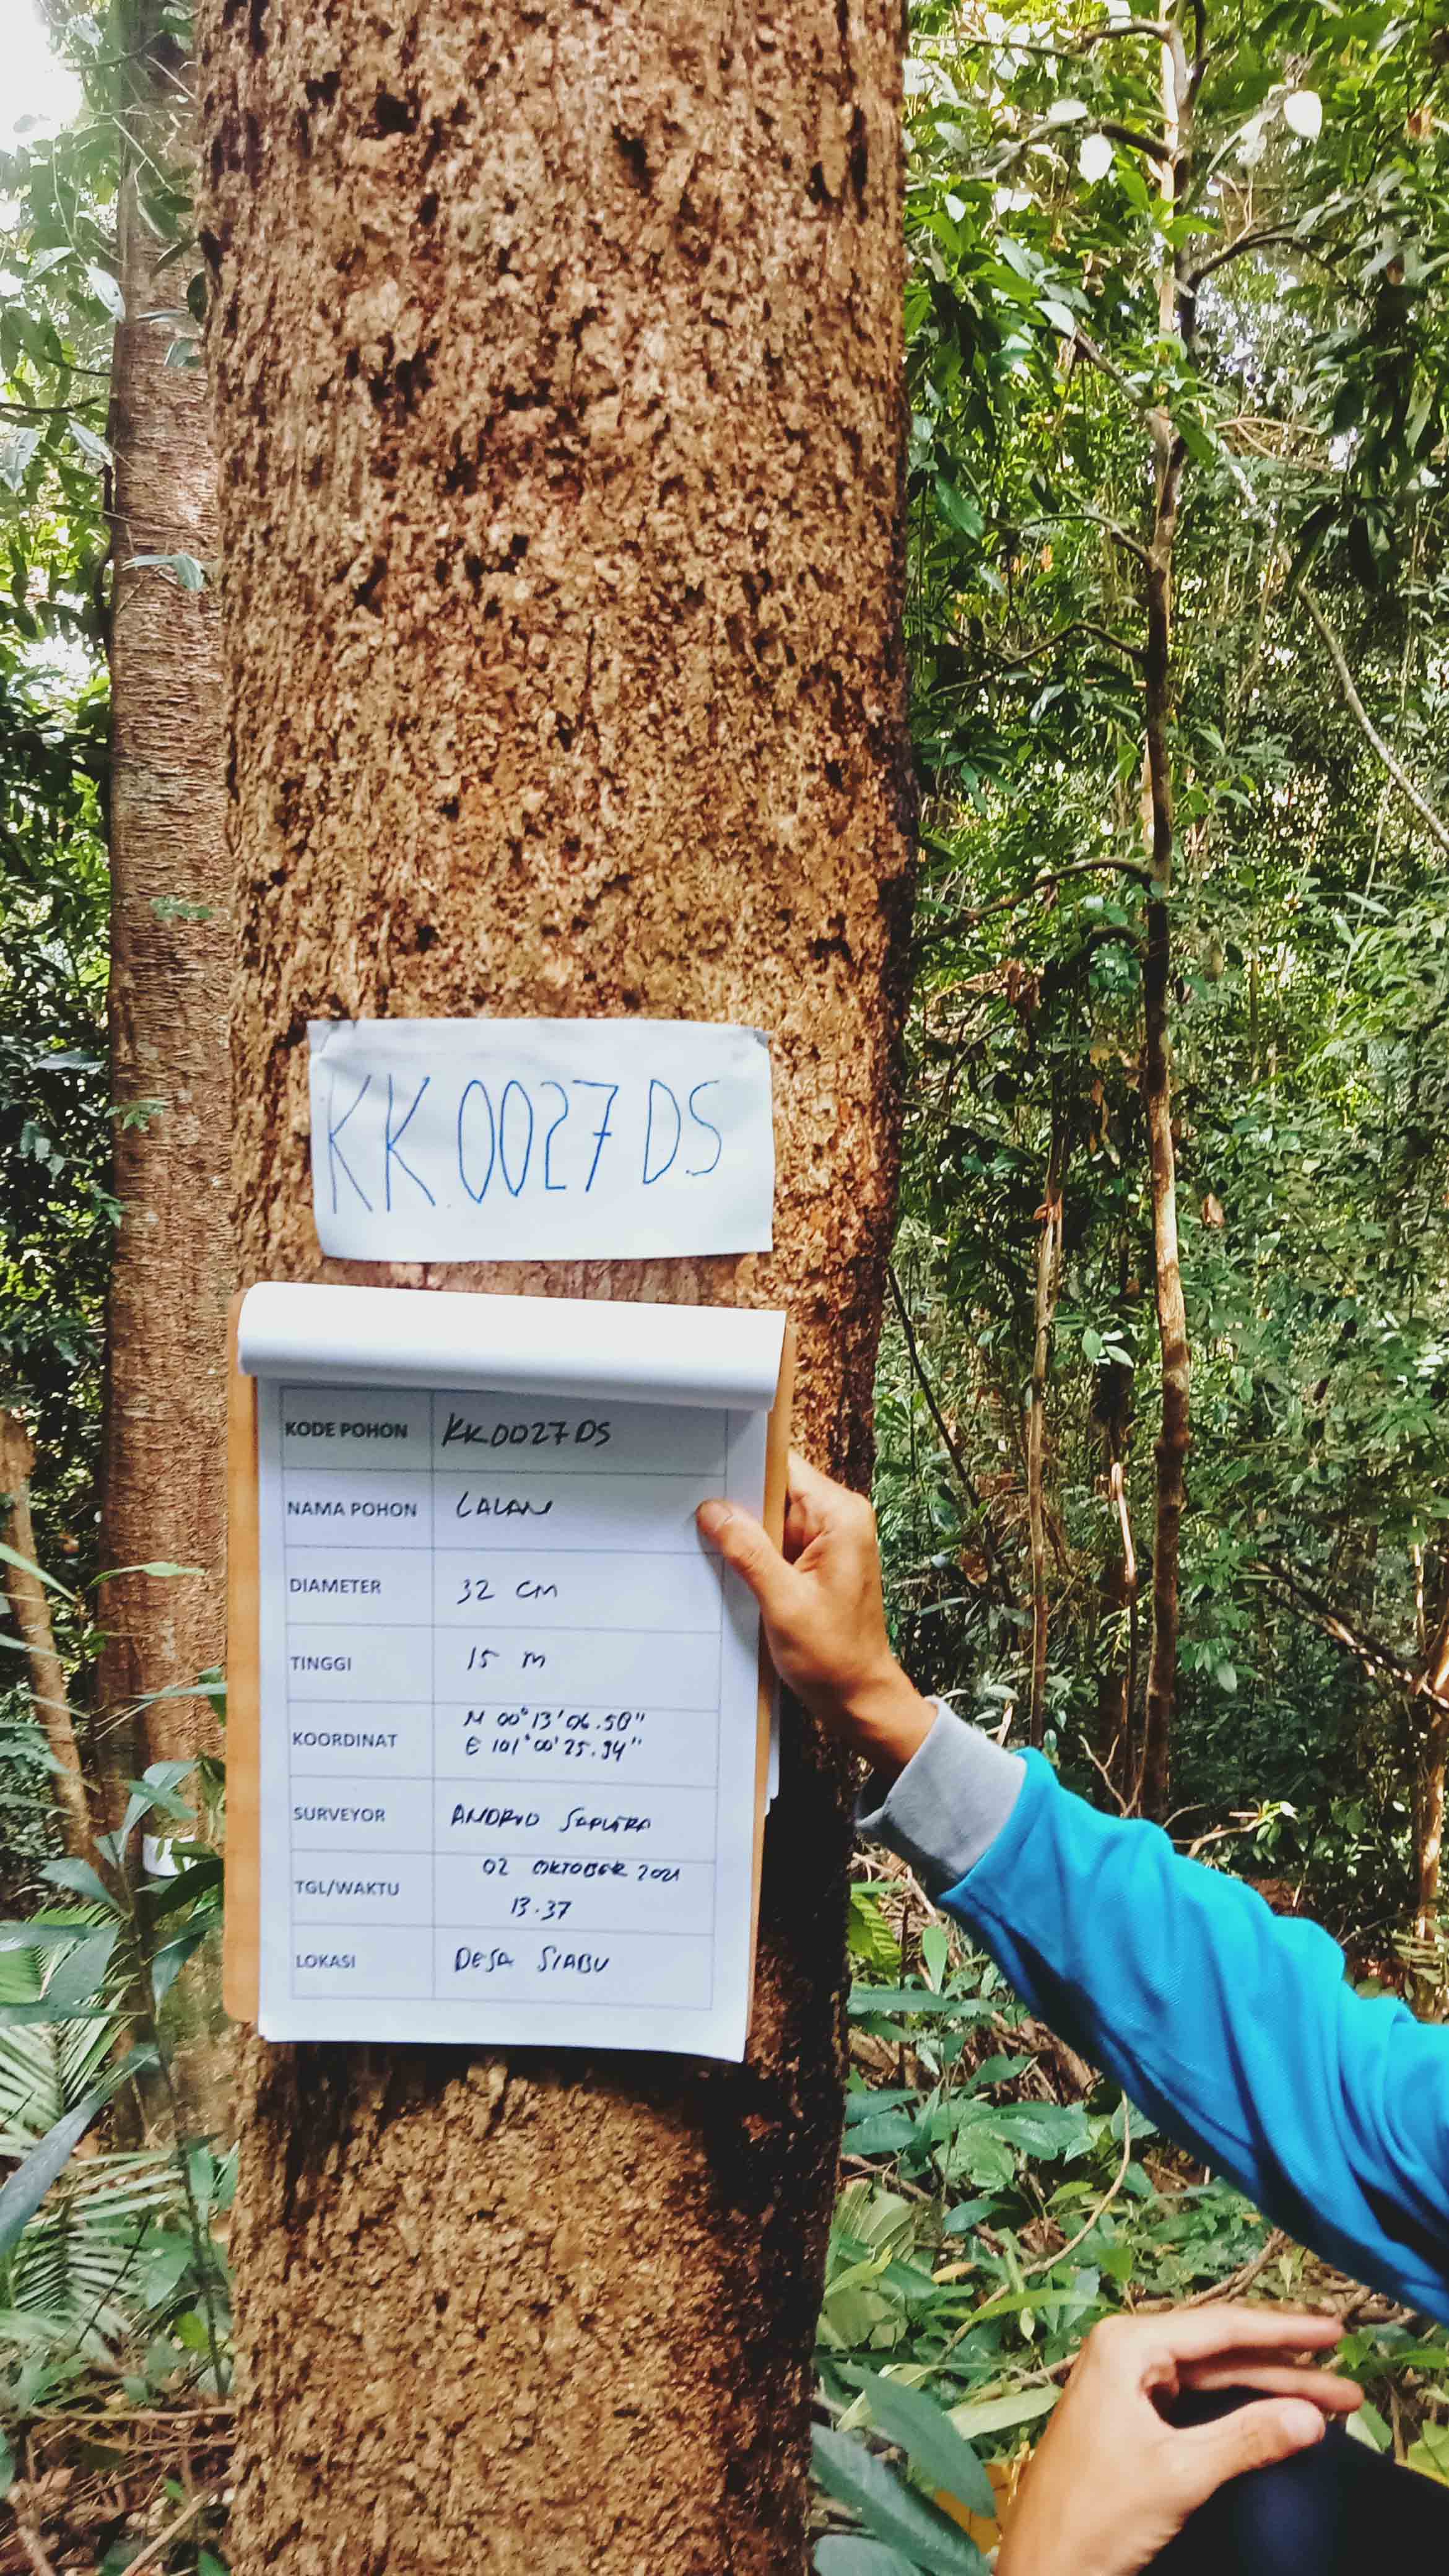 KK.0027 D.S
KODE POHON KK0027DS
NAMA POHON LALAN
DIAMETER 32 cm
TINGGI 15 m
KOORDINAT N 00°13'06.50"
E 101°00'25.94"
SURVEYOR ANDRIO SAPUTRA
TGL/WAKTU 02 OKTOBER 2021
13.37
LOKASI DESA SIABU